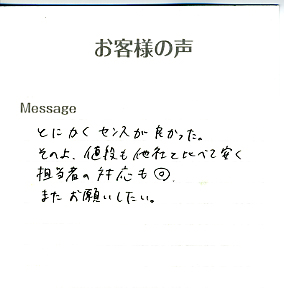 お客様の声
Message
とにかくセンスが良かった。
その上、値段も他社と比べて安く
担当者の対応も◎.
またお願いしたい。